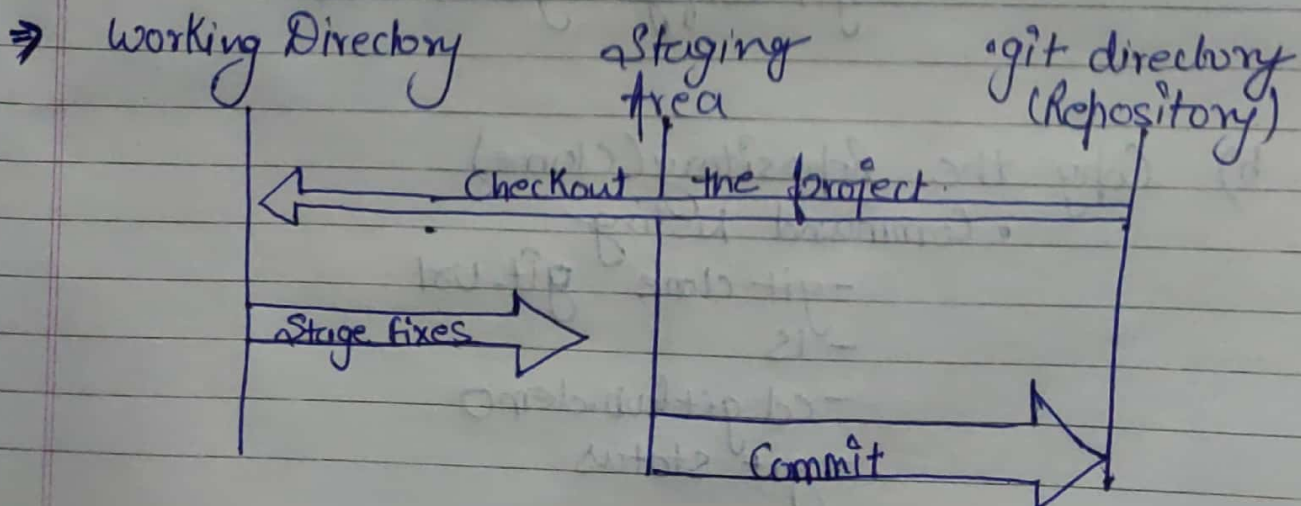 ⇒ Working Directory Staging Area .git directory (Repository)
Checkout the project.
Stage fixes
Commit